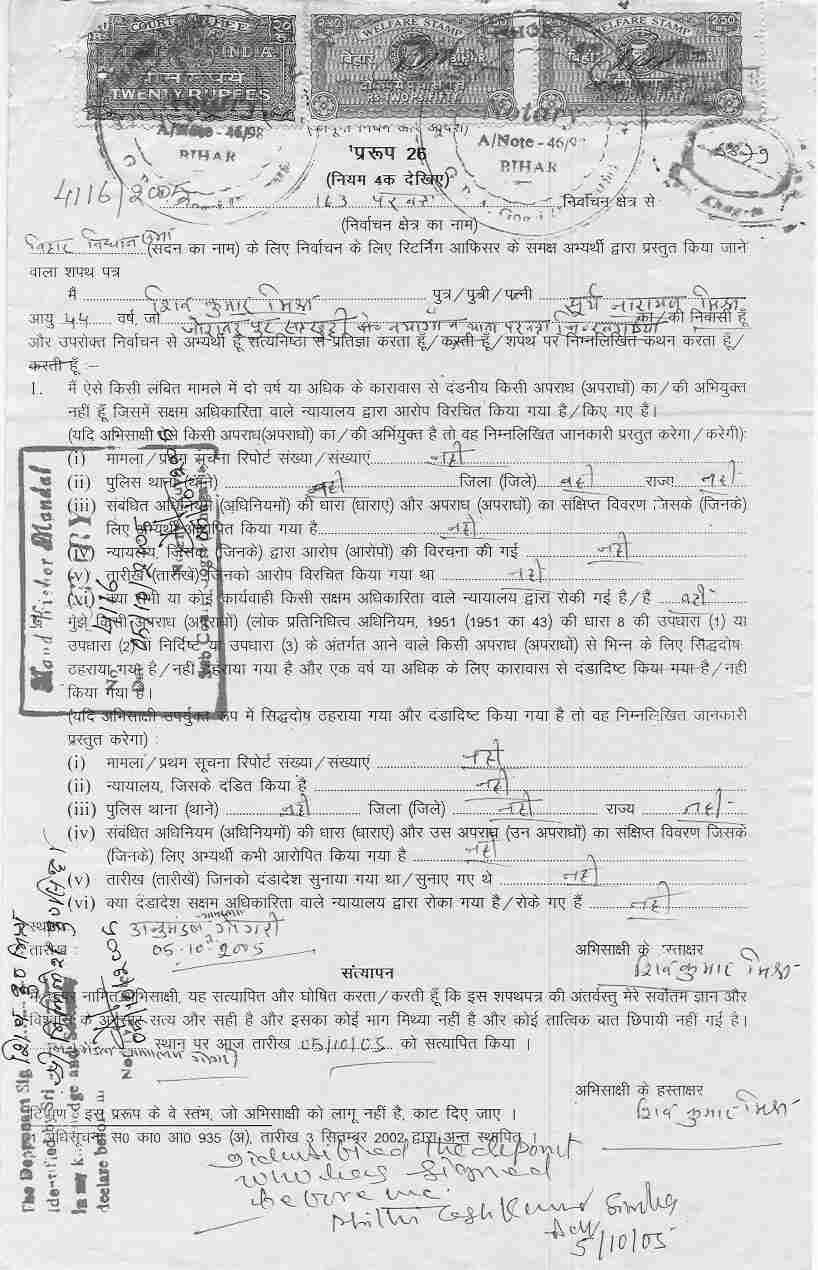 COURT FEE
INDIA
TWENTY RUPEES
WELFARE STAMP
बिहार BIHAR
RS.TWO P.FIFTY
WELFARE STAMP
बिहार BIHAR
RS.TWO P.FIFTY
Notary
A/Note - 46/98
BIHAR
Notary
A/Note - 46/9
BIHAR
प्ररूप 26
(नियम 4क देखिए)
4116/2005
163 परबत्ता निर्वाचन क्षेत्र से
(निर्वाचन क्षेत्र का नाम)
बिहार विधान सभा (सदन का नाम) के लिए निर्वाचन के लिए रिटर्निंग आफिसर के समक्ष अभ्यर्थी द्वारा प्रस्तुत किया जाने
वाला शपथ पत्र
मैं शिव कुमार मिश्रा पुत्र/पुत्री/पत्नी सूर्य नारायण मिश्रा
आयु 44 वर्ष, जो का/की निवासी हूँ
और उपरोक्त निर्वाचन से अभ्यर्थी हूँ सत्यनिष्ठा से प्रतिज्ञा करता हूँ/करती हूँ/शपथ पर निम्नलिखित कथन करता हूँ/
करती हूँ :–
1. मैं ऐसे किसी लंबित मामले में दो वर्ष या अधिक के कारावास से दंडनीय किसी अपराध (अपराधों) का/की अभियुक्त
नहीं हूँ जिसमें सक्षम अधिकारिता वाले न्यायालय द्वारा आरोप विरचित किया गया है/किए गए है।
(यदि अभिसाक्षी ऐसे किसी अपराध(अपराधों) का/की अभियुक्त है तो वह निम्नलिखित जानकारी प्रस्तुत करेगा/करेगी):
(i) मामला/प्रथम सूचना रिपोर्ट संख्या/संख्याएं नही
(ii) पुलिस थाना (थाने) नही जिला (जिले) नही राज्य नही
(iii) संबंधित अधिनियम (अधिनियमों) की धारा (धाराए) और अपराध (अपराधों) का संक्षिप्त विवरण जिसके (जिनके)
लिए अभ्यर्थी आरोपित किया गया है नही
न्यायालय, जिसके (जिनके) द्वारा आरोप (आरोपों) की विरचना की गई नही
(v) तारीख (तारीखें) जिनको आरोप विरचित किया गया था नही
(vi) क्या सभी या कोई कार्यवाही किसी सक्षम अधिकारिता वाले न्यायालय द्वारा रोकी गई है/हैं नही
मुझे किसी अपराध (अपराधों) (लोक प्रतिनिधित्व अधिनियम, 1951 (1951 का 43) की धारा 8 की उपधारा (1) या
उपधारा (2) में निर्दिष्ट या उपधारा (3) के अंतर्गत आने वाले किसी अपराध (अपराधों) से भिन्न के लिए सिद्धदोष
ठहराया गया है/नही ठहराया गया है और एक वर्ष या अधिक के लिए कारावास से दंडादिष्ट किया गया है/नही
किया गया है।
(यदि अभिसाक्षी उपर्युक्त रूप में सिद्धदोष ठहराया गया और दंडादिष्ट किया गया है तो वह निम्नलिखित जानकारी
प्रस्तुत करेगा) :
(i) मामला/प्रथम सूचना रिपोर्ट संख्या/संख्याएं नही
(ii) न्यायालय, जिसके दंडित किया है नही
(iii) पुलिस थाना (थाने) नही जिला (जिले) नही राज्य नही
(iv) संबंधित अधिनियम (अधिनियमों) की धारा (धाराए) और उस अपराध (उन अपराधों) का संक्षिप्त विवरण जिसके
(जिनके) लिए अभ्यर्थी कभी आरोपित किया गया है नही
(v) तारीख (तारीखें) जिनको दंडादेश सुनाया गया था/सुनाए गए थे नही
(vi) क्या दंडादेश सक्षम अधिकारिता वाले न्यायालय द्वारा रोका गया है/रोके गए हैं नही
स्थान अनुमंडल गोगरी
तारीख : 05.10.2005
अभिसाक्षी के हस्ताक्षर
शिव कुमार मिश्रा
सत्यापन
नामित अभिसाक्षी, यह सत्यापित और घोषित करता/करती हूँ कि इस शपथपत्र की अंतर्वस्तु मेरे सर्वोतम ज्ञान और
विश्वास के अनुसार सत्य और सही है और इसका कोई भाग मिथ्या नही है और कोई तात्विक बात छिपायी नहीं गई है।
स्थान पर आज तारीख 05/10/05 को सत्यापित किया ।
अभिसाक्षी के हस्ताक्षर
शिव कुमार मिश्रा
टिप्पण : इस प्ररूप के वे स्तंभ, जो अभिसाक्षी को लागू नही है, काट दिए जाए ।
अधिसूचना स0 का0 आ0 935 (अ), तारीख 3 सितम्बर 2002 द्वारा अन्त स्थापित ।
Identified the deponent
who has signed
before me.
Mithilesh Kumar Sinha
Adv
5/10/05
Nand Kishor Mandal
No 4116
05/10/2005
The Deponent Sig शिव कु0 मिश्रा
Identified by Sri
in my knowledge and
declare before m